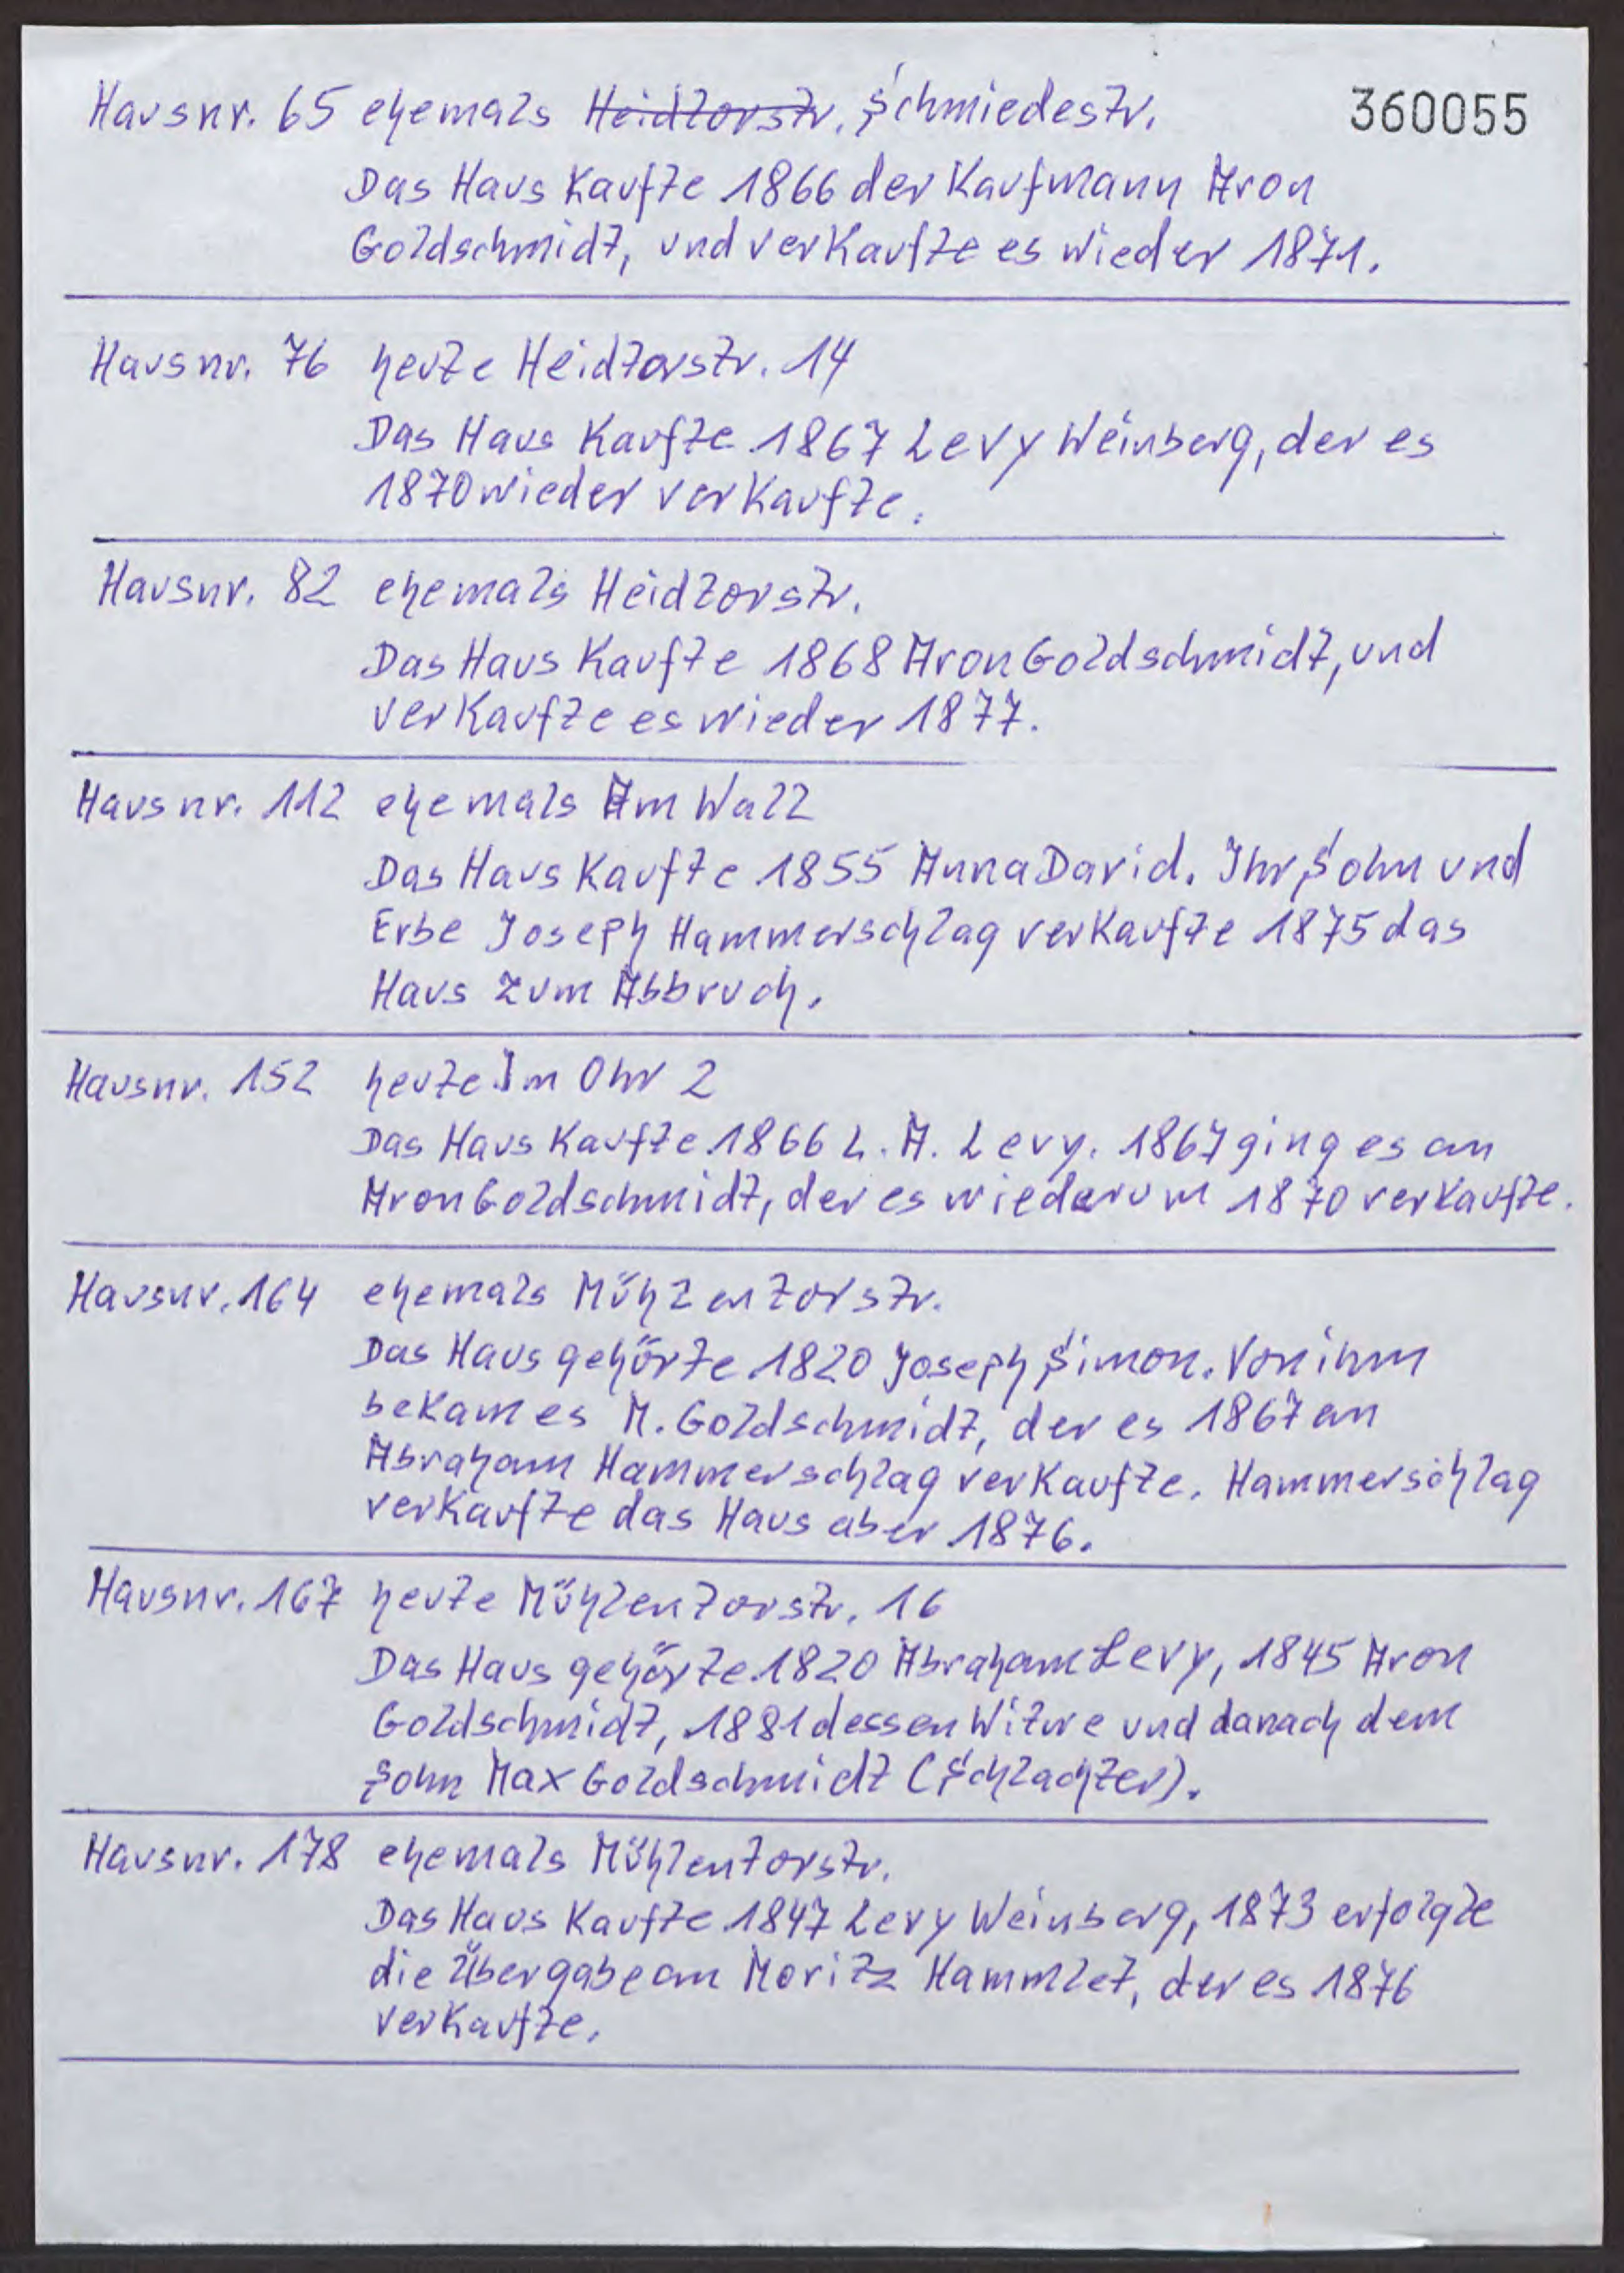 Hausnr. 65 ehemals Heidtorstr. Schmiedestr. 360055
Das Haus kaufte 1866 der Kaufmann Aron
Goldschmidt, und verkaufte es wieder 1871.
Hausnr. 76 heute Heidtorstr. 14
Das Haus kaufte 1867 Levy Weinberg, der es
1870 wieder verkaufte.
Hausnr. 82 ehemals Heidtorstr.
Das Haus kaufte 1868 Aron Goldschmidt, und
verkaufte es wieder 1877.
Hausnr. 112 ehemals Am Wall
Das Haus kaufte 1855 Anna David. Ihr Sohn und
Erbe Joseph Hammerschlag verkaufte 1875 das
Haus zum Abbruch.
Hausnr. 152 heute Im Ohr 2
Das Haus kaufte 1866 L. A. Levy. 1867 ging es an
Aron Goldschmidt, der es wiederum 1870 verkaufte.
Hausnr. 164 ehemals Mühlentorstr.
Das Haus gehörte 1820 Joseph Simon. Von ihm
bekam es M. Goldschmidt, der es 1867 an
Abraham Hammerschlag verkaufte. Hammerschlag
verkaufte das Haus aber 1876.
Hausnr. 167 heute Mühlentorstr. 16
Das Haus gehörte 1820 Abraham Levy, 1845 Aron
Goldschmidt, 1881 dessen Witwe und danach dem
Sohn Max Goldschmidt (Schlachter).
Hausnr. 178 ehemals Mühlentorstr.
Das Haus kaufte 1847 Levy Weinberg, 1873 erfolgte
die Übergabe an Moritz Hammlet, der es 1876
verkaufte.